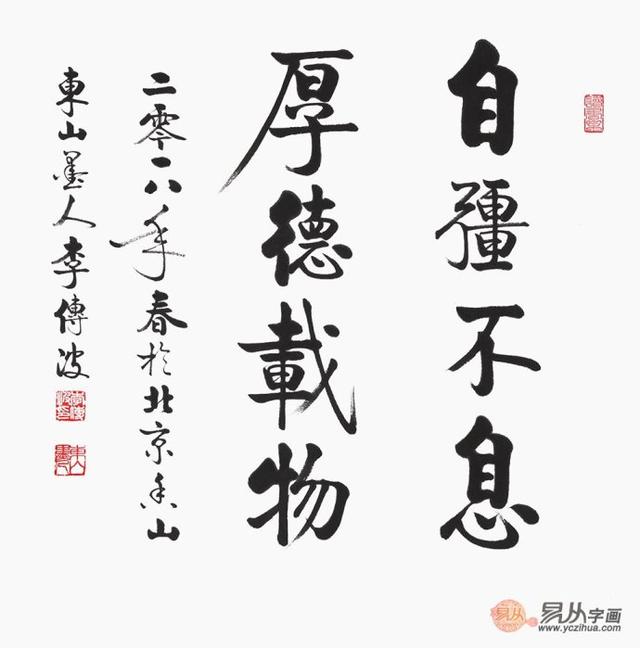 自彊不息
厚德載物
二零一八年春於北京香山
東山墨人李傳波
易从
易从字画
www.yczihua.com